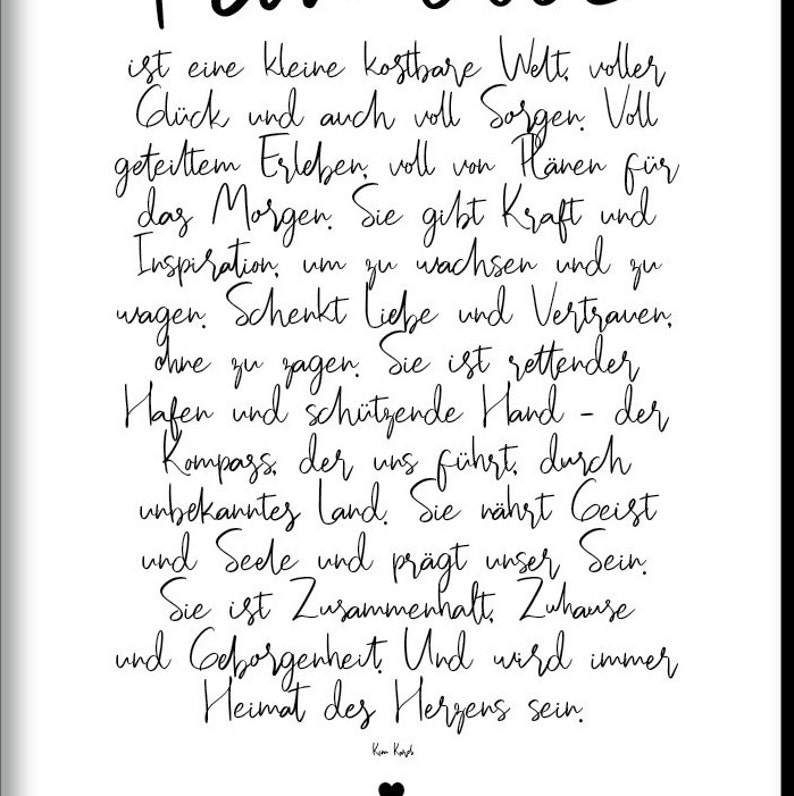 ist eine kleine kostbare Welt, voller
Glück und auch voll Sorgen. Voll
geteiltem Erleben, voll von Plänen für
das Morgen. Sie gibt Kraft und
Inspiration, um zu wachsen und zu
wagen. Schenkt Liebe und Vertrauen,
ohne zu zagen. Sie ist rettender
Hafen und schützende Hand - der
Kompass, der uns führt, durch
unbekanntes Land. Sie nährt Geist
und Seele und prägt unser Sein.
Sie ist Zusammenhalt, Zuhause
und Geborgenheit. Und wird immer
Heimat des Herzens sein.